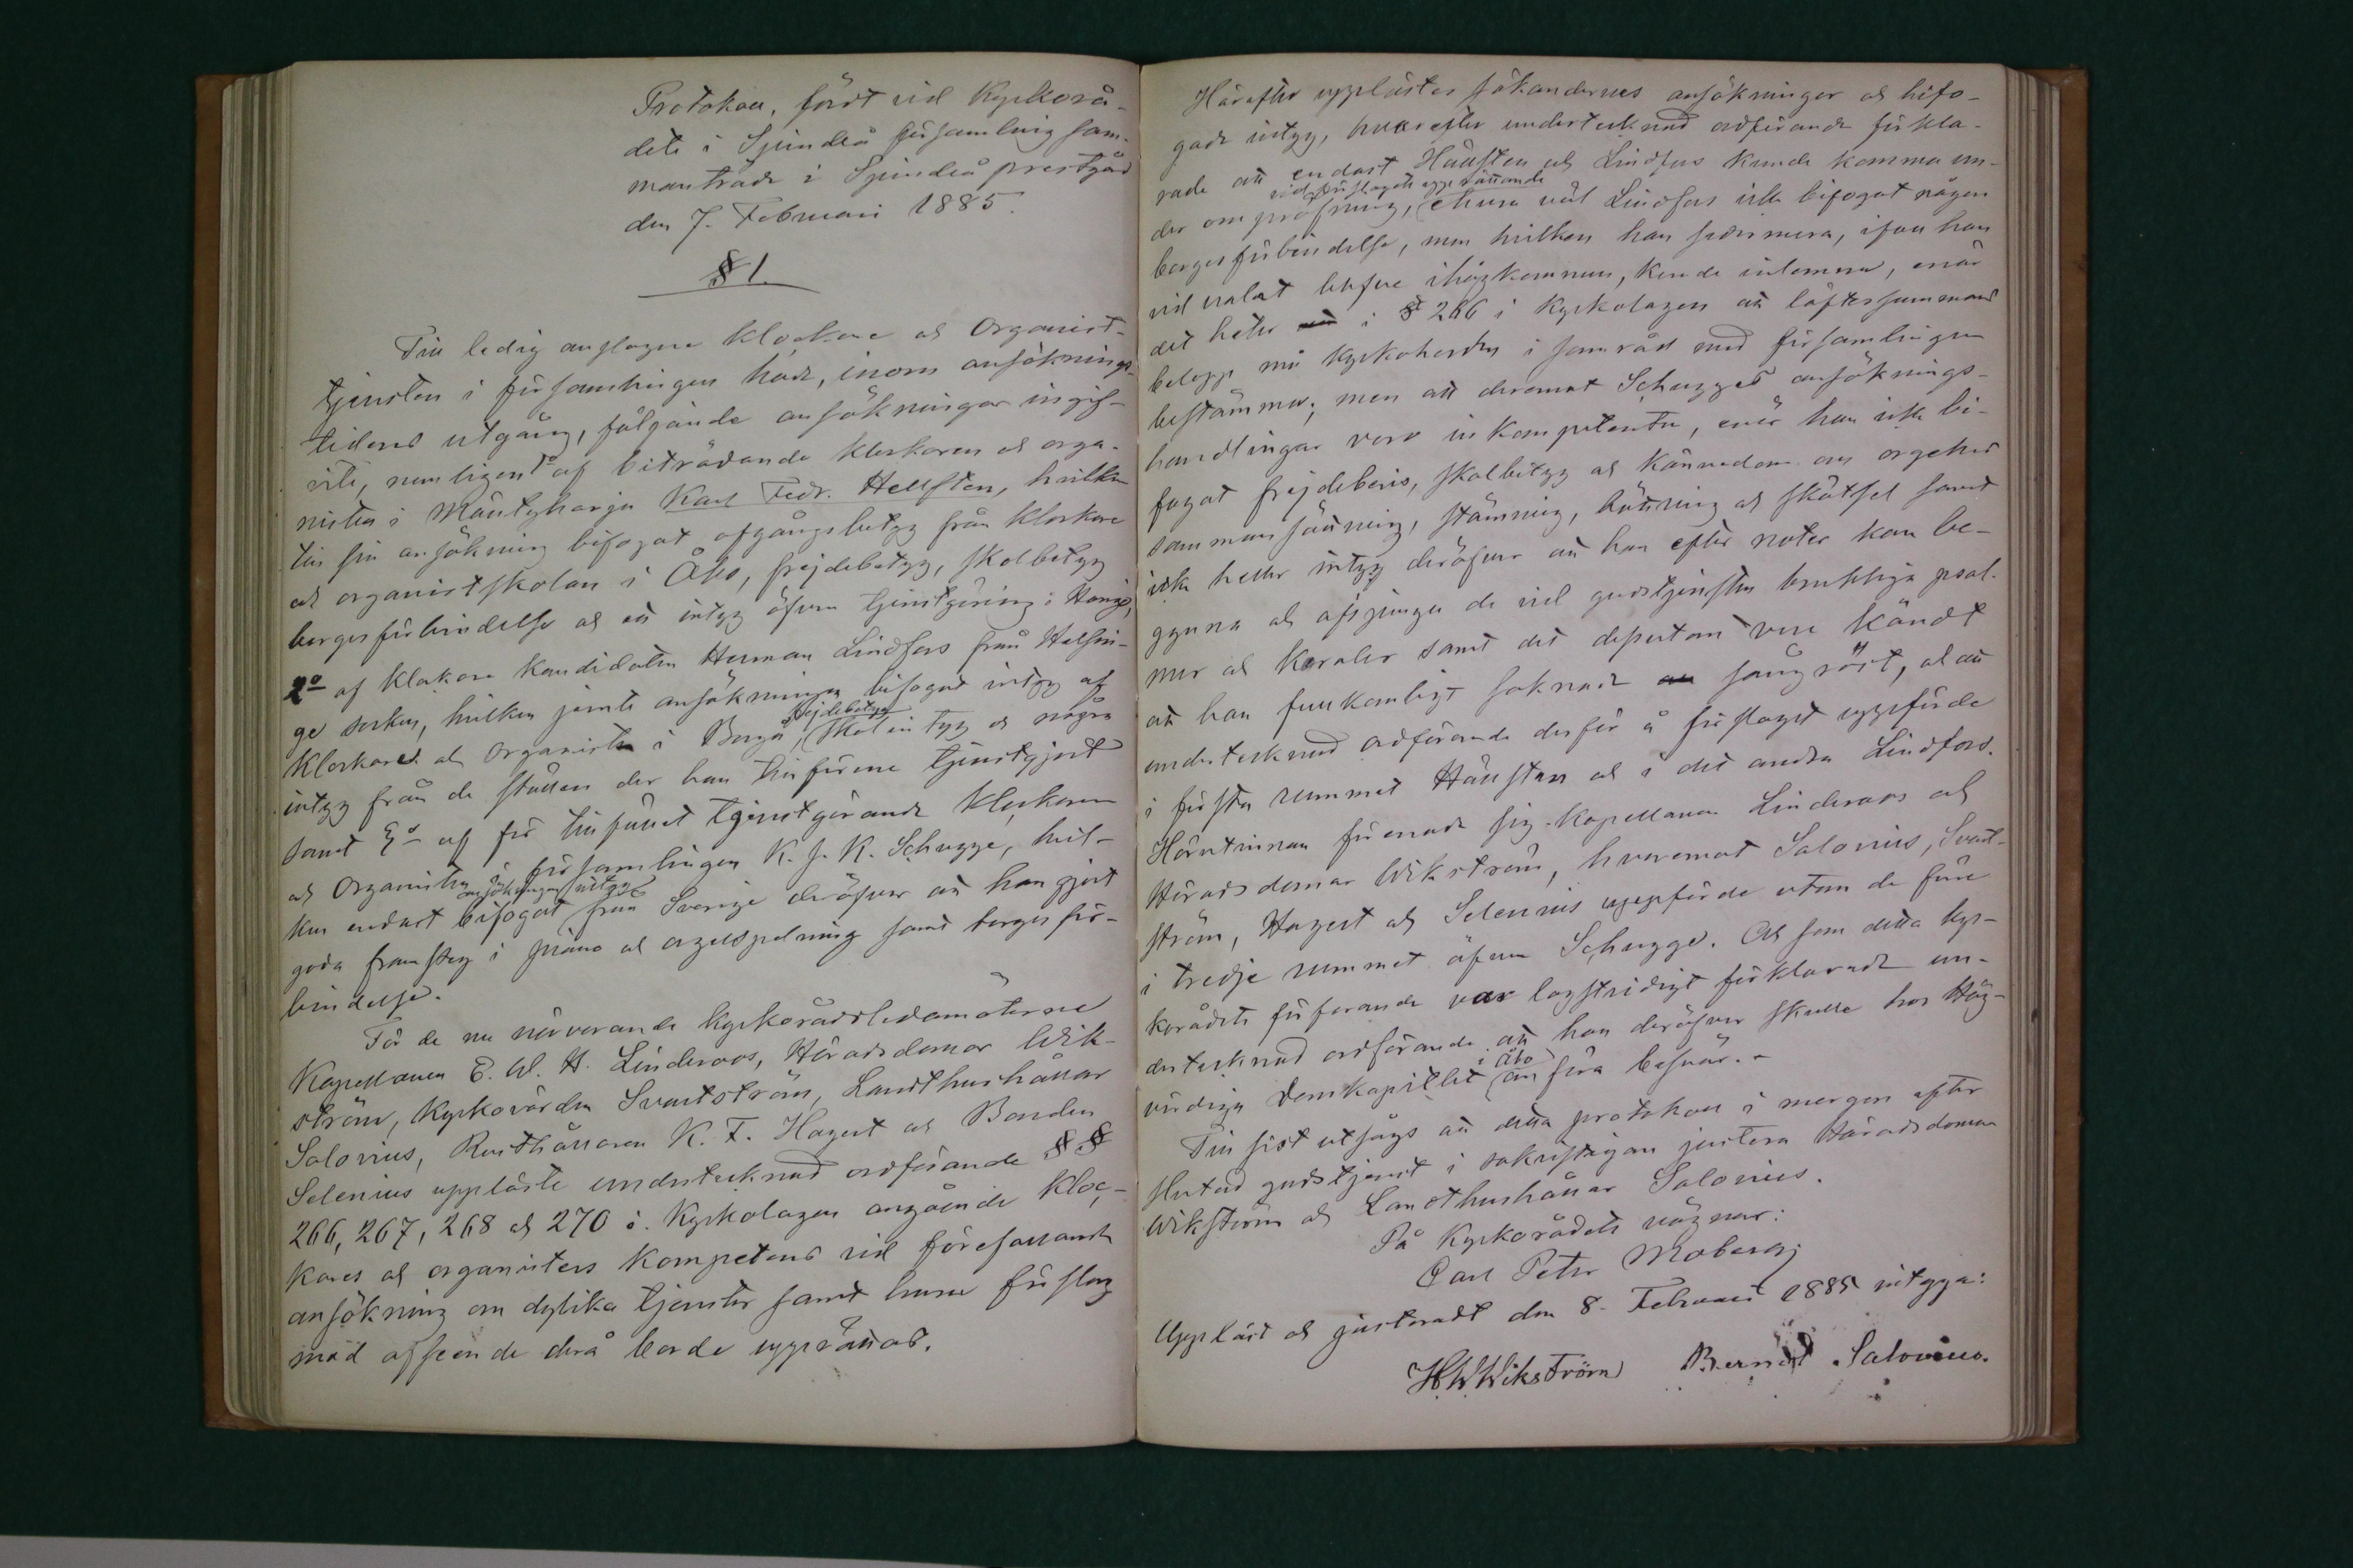 Protokoll, fördt vid Kyrkorå-
dets i Sjundeå församling sam-
manträde i Sjundeå prestgård
den 7. Februari 1885.
§ 1.
Till ledig anslagne klockare och Organist-
tjensten i församlingen hade, inom ansöknings-
tidens utgång, följande ansökningar ingif-
vits, nemligen 1º af biträdande klockaren och orga-
nisten i Mäntyharju Karl Fedr. Hellsten, hvilken
till sin ansökning bifogat afgångsbetyg från klockare
och organistskolan i Åbo, frejdebetyg, skolbetyg
borgesförbindelse och ett intyg öfver tjenstgöring i Hangö,
2º af klockare kandidaten Herman Lindfors från Helsin-
ge socken, hvilken jemte ansökningen bifogat intyg af
Klockaren och Organisten i Borgå, frejdebetyg, skolintyg och några
intyg från de ställen der han tillförene tjenstgjort
samt 3º af för tillfället tjenstgörande klockaren
och Organisten i församlingen K. J. K. Schugge, hvil-
ken endast bifogat ansökningen intyg från Sverige deröfver att han gjort
goda framsteg i piano och orgelspelning samt borgesför-
bindelse.
För de nu närvarande kyrkorådsledamöterne
Kapellanen E. W. H. Linderoos, Häradsdomar Wik-
ström, Kyrkovärden Svartström, Landthushållar
Salovius, Rusthållaren K. F. Hagert och Bonden
Selenius uppläste undertecknad ordförande §§
266, 267, 268 och 270 i Kyrkolagen angående Kloc-
kares och organisters kompetens vid förefallande
ansökning om dylika tjenster samt huru förslag
med afseende derå borde upprättas.
Härefter upplästes sökandernes ansökningar och bifo-
gade intyg, hvarefter undertecknad ordförande förkla-
rade att endast Hällsten och Lindfors kunde komma un-
der ompröfning, vid förslagets upprättande ehuru väl Lindfors icke bifogat någon
borgesförbindelse, men hvilken han sedermera, ifall han
vid valet blefve ihågkommen, kunde inlemna, enär
det heter i § 266 i Kyrkolagen att löftessummans
belopp må Kyrkoherden i samråd med församlingen
bestämma; men att deremot Schugges ansöknings-
handlingar voro inkompetenta, enär han icke bi-
fogat frejdebevis, skolbetyg och kännedom om orgelns
sammansättning, stämning, bättring och skötsel samt
icke heller intyg deröfver att han efter noter kan be-
gynna och afsjunga de vid gudstjensten brukliga psal-
mer och koraler samt det dessutom vore kändt
att han fullkomligt saknade sångröst, och att
undertecknad ordförande derför å förslaget uppförde
i första rummet Hällsten och i det andra Lindfors.
Härutinnan förenade sig Kapellanen Linderoos och
Häradsdomar Wikström, hvaremot Salovius, Svart-
ström, Hagert och Selenius uppförde utom de förre
i tredje rummet äfven Schugge. Och som detta kyr-
korådets förfarande var lagstridigt förklarade un-
dertecknad ordförande att han deröfver skulle hos Hög-
vördiga Domkapitlet i Åbo anföra besvär. -
Till sist utsågs att detta protokoll i morgon efter
slutad gudstjenst i sakristigan justera Häradsdomar
Wikström och Landthushållar Salovius.
På Kyrkorådets vägnar:
Carl Peter Moberg
Uppläst och justeradt den 8. Februari 1885 intyga:
H W Wikström Bernd. Salovius.